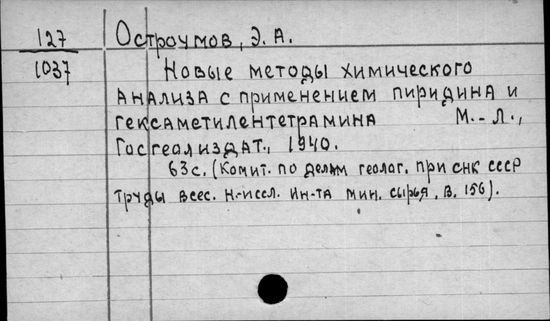 127
1037
Остроумов, Э. А.
Новые методы химического
анализа с применением пиридина и
гексаметилентетрамина М.-Л.,
Госгеолиздат, 1940.
63 с. (Комит. по делам геолог. при СНК СССР
Труды всес. н-иссл. ин-та мин. сырья, в. 156).